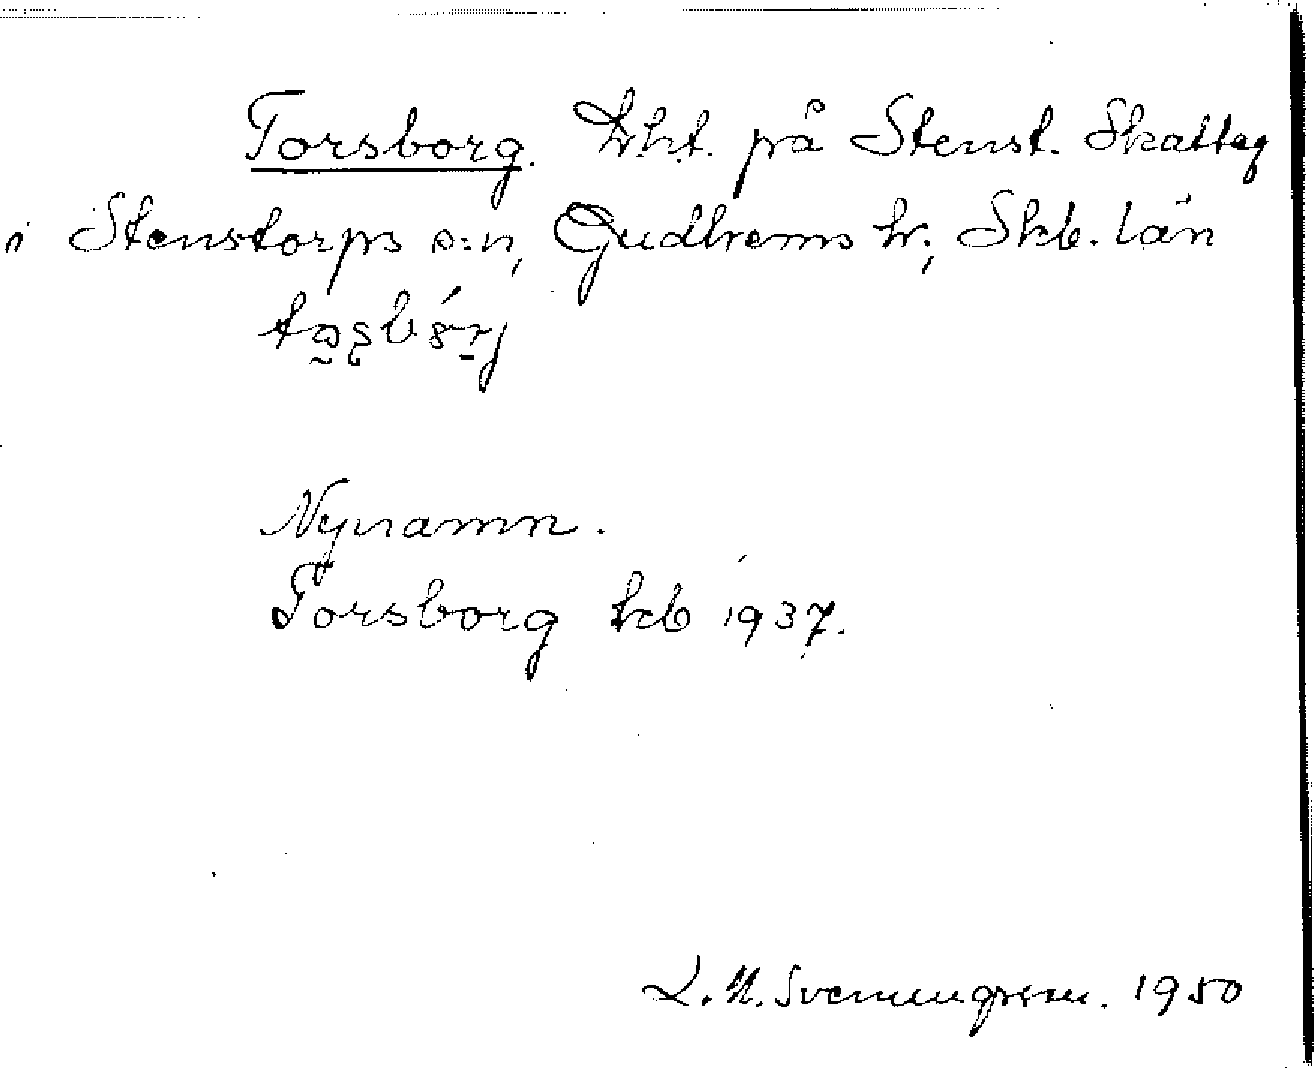 Torsborg. Lht. på Stenst. Skatteg
i Stenstorps s:n, Gudhems hr; Skb. län
Nynamn.
Torsborg kb 1937.
1950